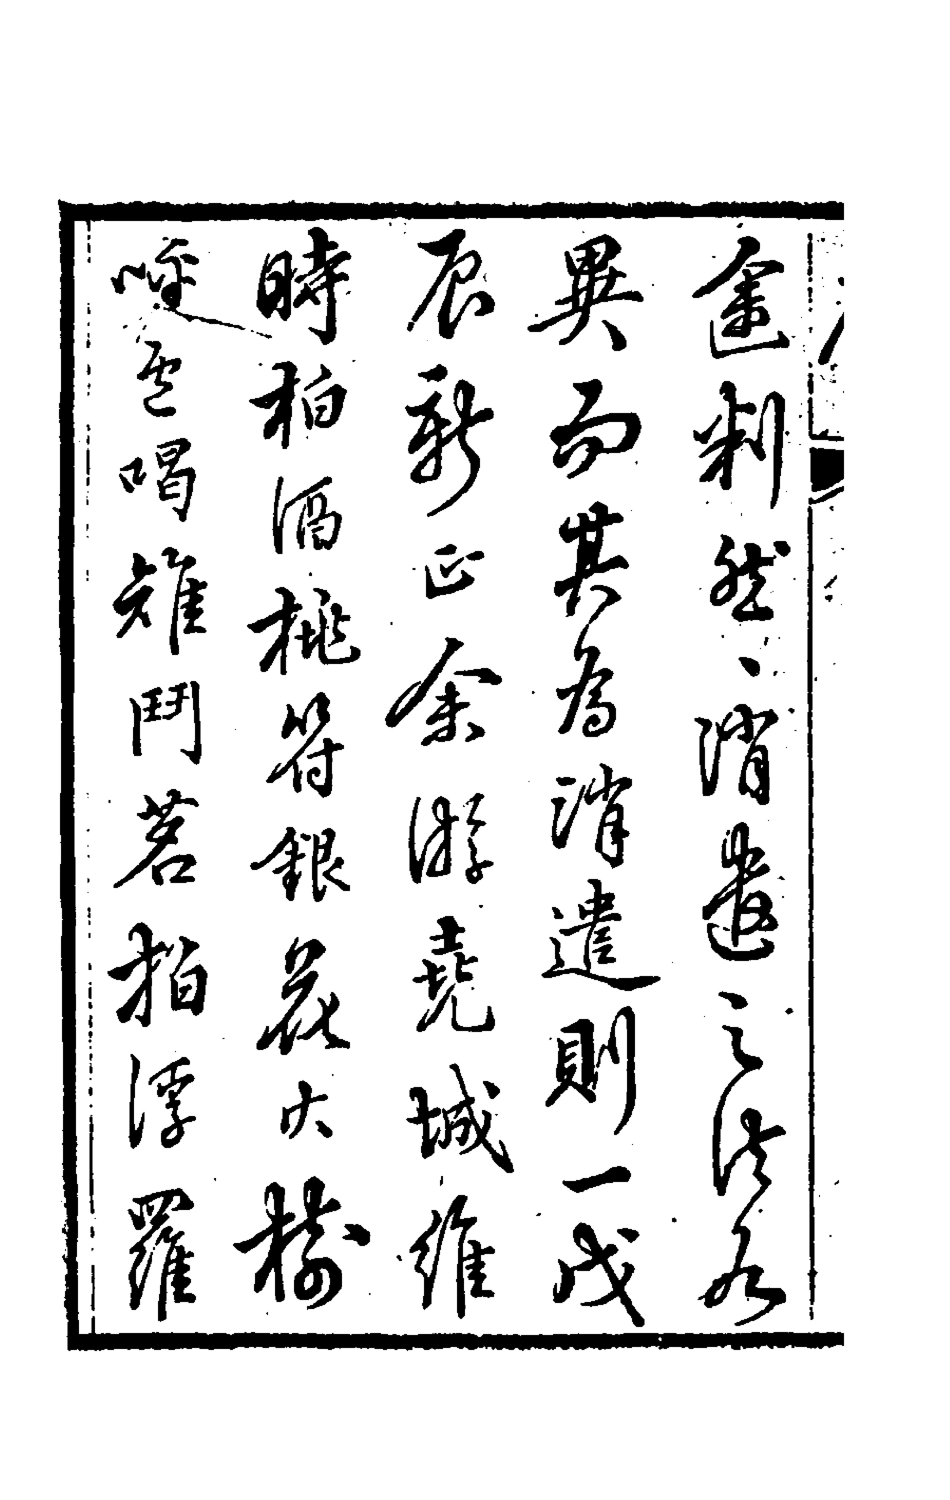 途判然消遣之法各
異而其為消遣則一戊
辰新正余游堯城維
時柏酒桃符銀花火樹
呼盧喝雉鬥茗拍浮羅